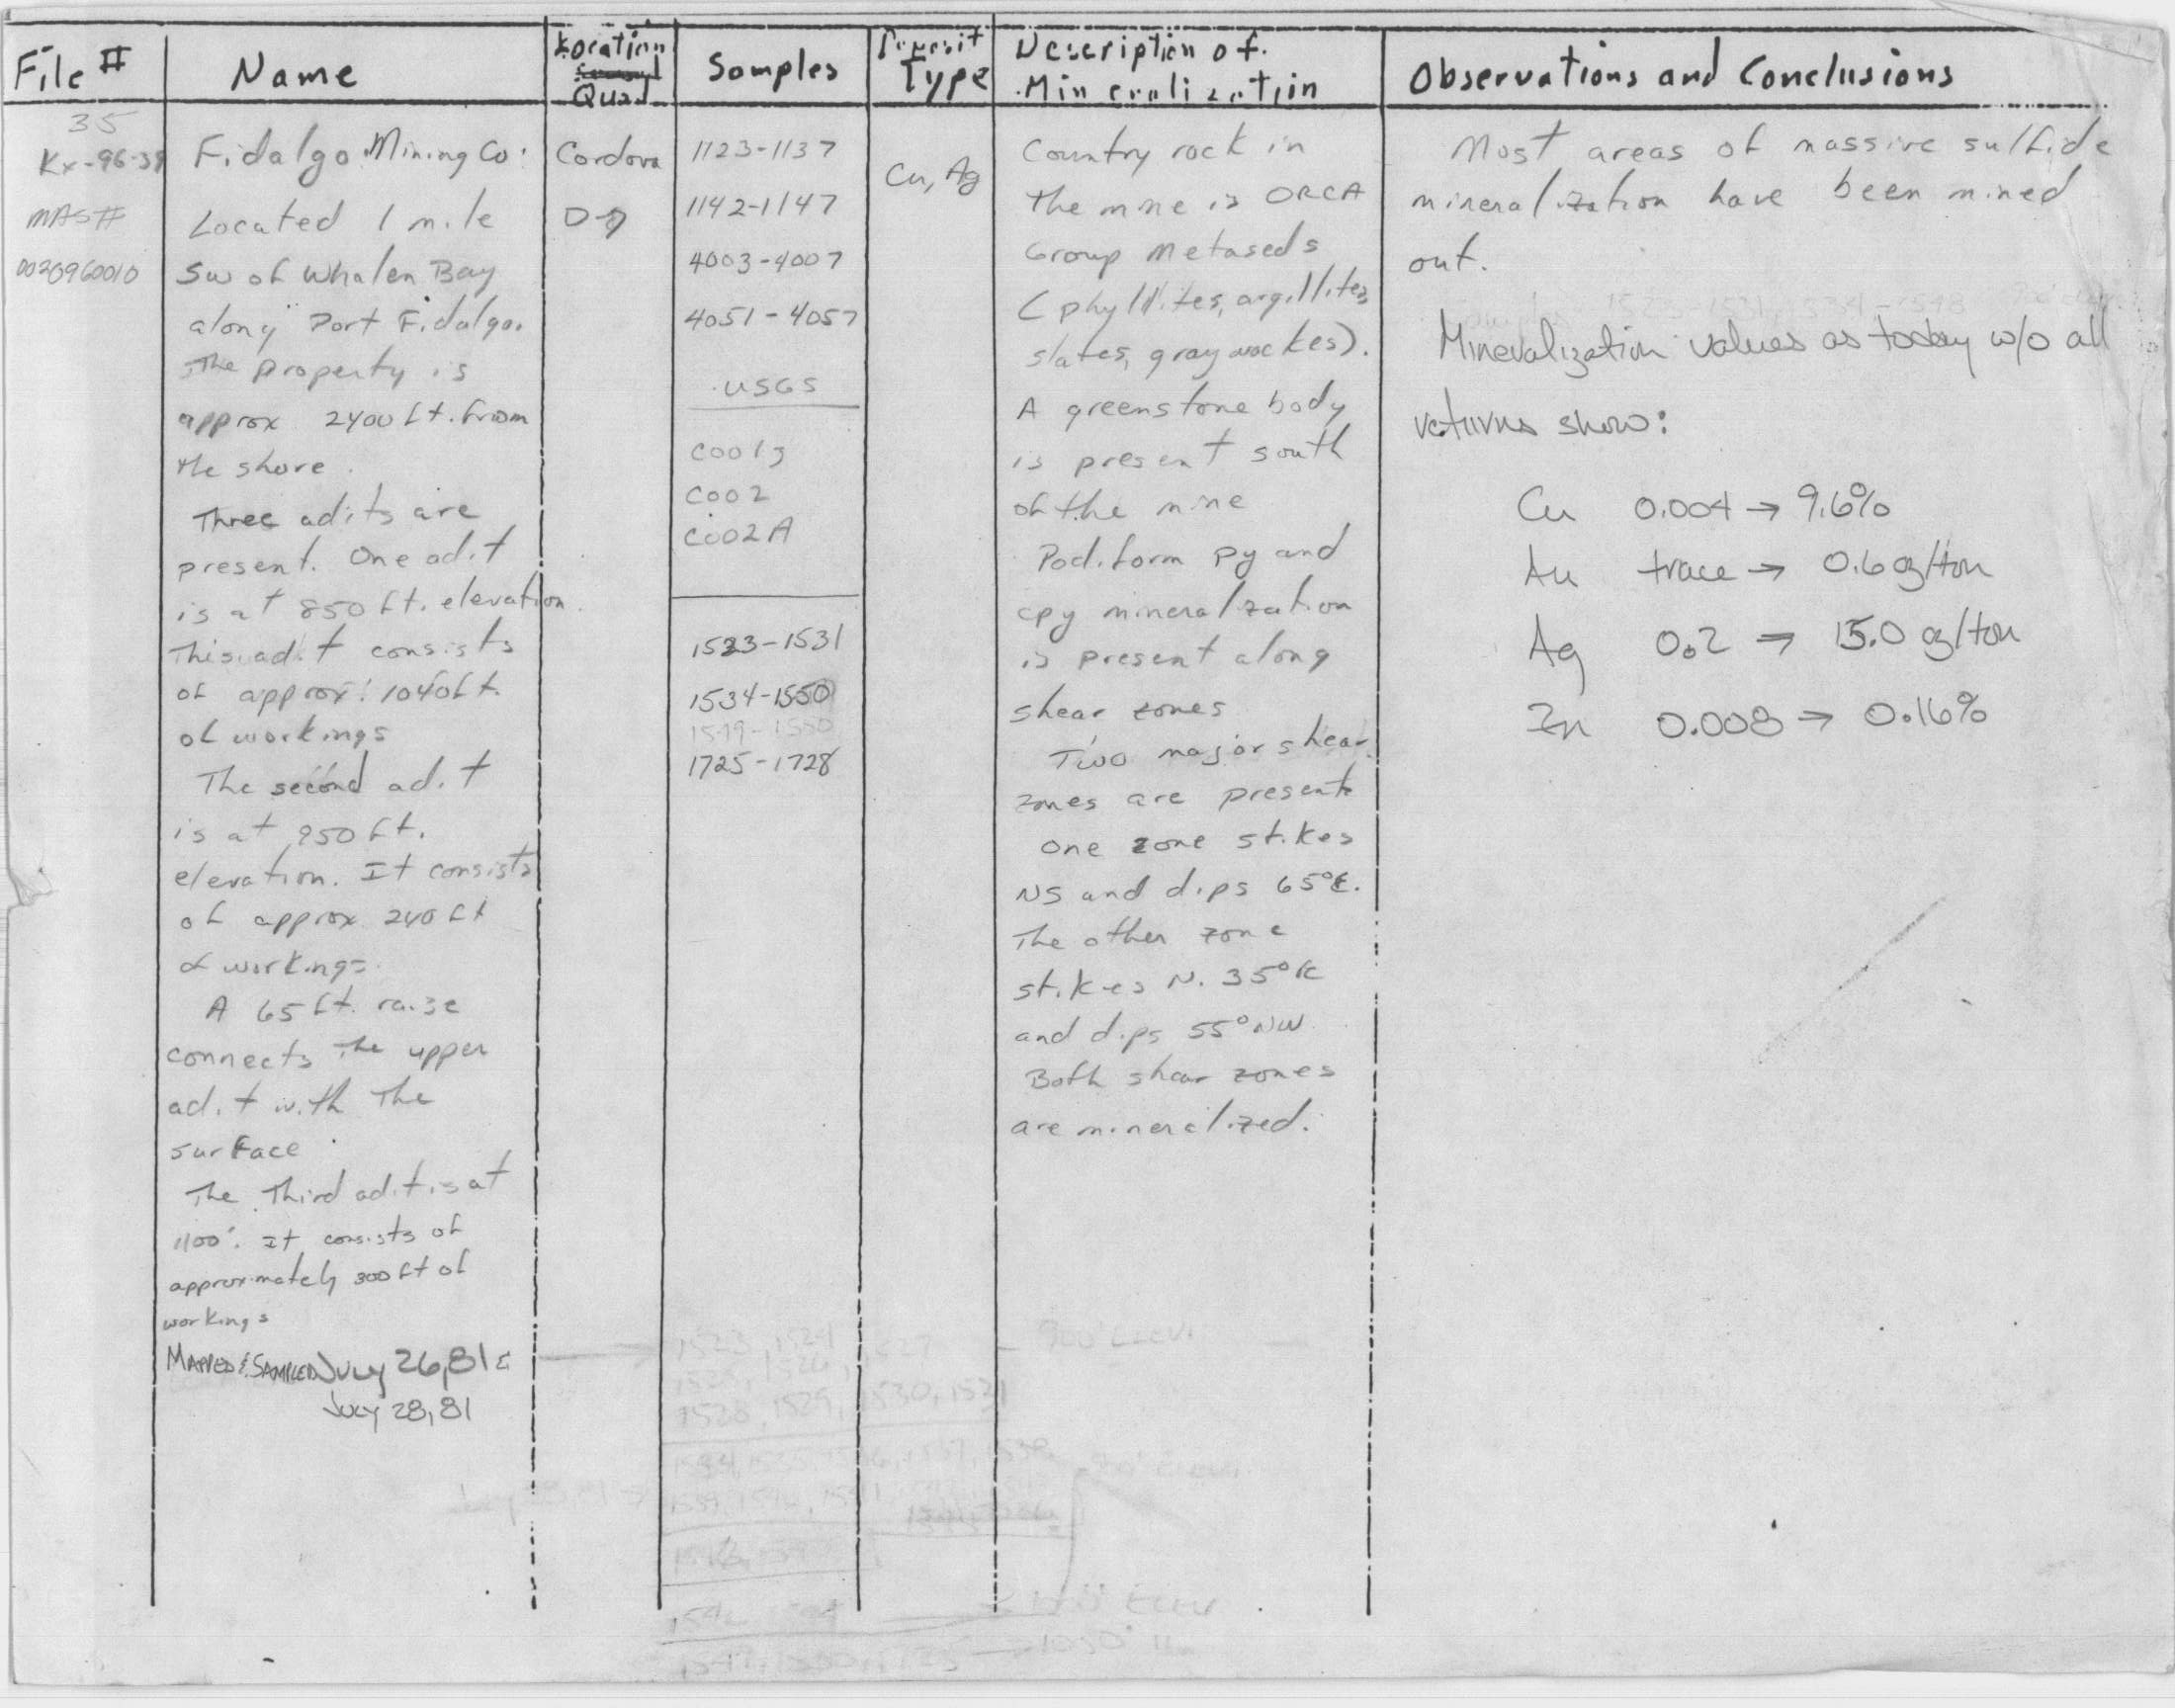 File #
Name
Location
Quad
Samples
Deposit
Type
Description of
Mineralization
Observations and Conclusions
35
Kx-96-39
MAS#
0020960010
Fidalgo Mining Co.
Located 1 mile
SW of Whalen Bay
along Port Fidalgo.
The property is
approx 2400 ft. from
the shore.
Three adits are
present. One adit
is at 850 ft. elevation.
This adit consists
of approx. 1040 ft.
of workings
The second adit
is at 950 ft.
elevation. It consists
of approx. 240 ft
of workings.
A 65 ft. raise
connects the upper
adit with the
surface.
The Third adit is at
1100'. It consists of
approximately 300 ft of
workings
MAPPED & SAMPLED JULY 26, 81 &
JULY 28, 81
Cordova
D-7
1123-1137
1142-1147
4003-4007
4051-4057
USGS
C002
C002A
1523-1531
1534-1550
1549-1550
1725-1728
Cu, Ag
Country rock in
the mine is ORCA
Group Metaseds
(phyllites, argillites,
slates, graywackes).
A greenstone body
is present south
of the mine
Podiform py and
cpy mineralization
is present along
shear zones
Two major shear
zones are present.
One zone stikes
NS and dips 65°E.
The other zone
stikes N. 35° E
and dips 55° NW.
Both shear zones
are mineralized.
Most areas of massive sulfide
mineralization have been mined
out.
1523-1531, 1534-1548
Mineralization values as today w/o all
returns show:
Cu 0.004 → 9.6%
Au trace → 0.6 oz/ton
Ag 0.2 → 15.0 oz/ton
Zn 0.008 → 0.16%
1523, 1524
900' Elev.
1528, 1529, 1530, 1531